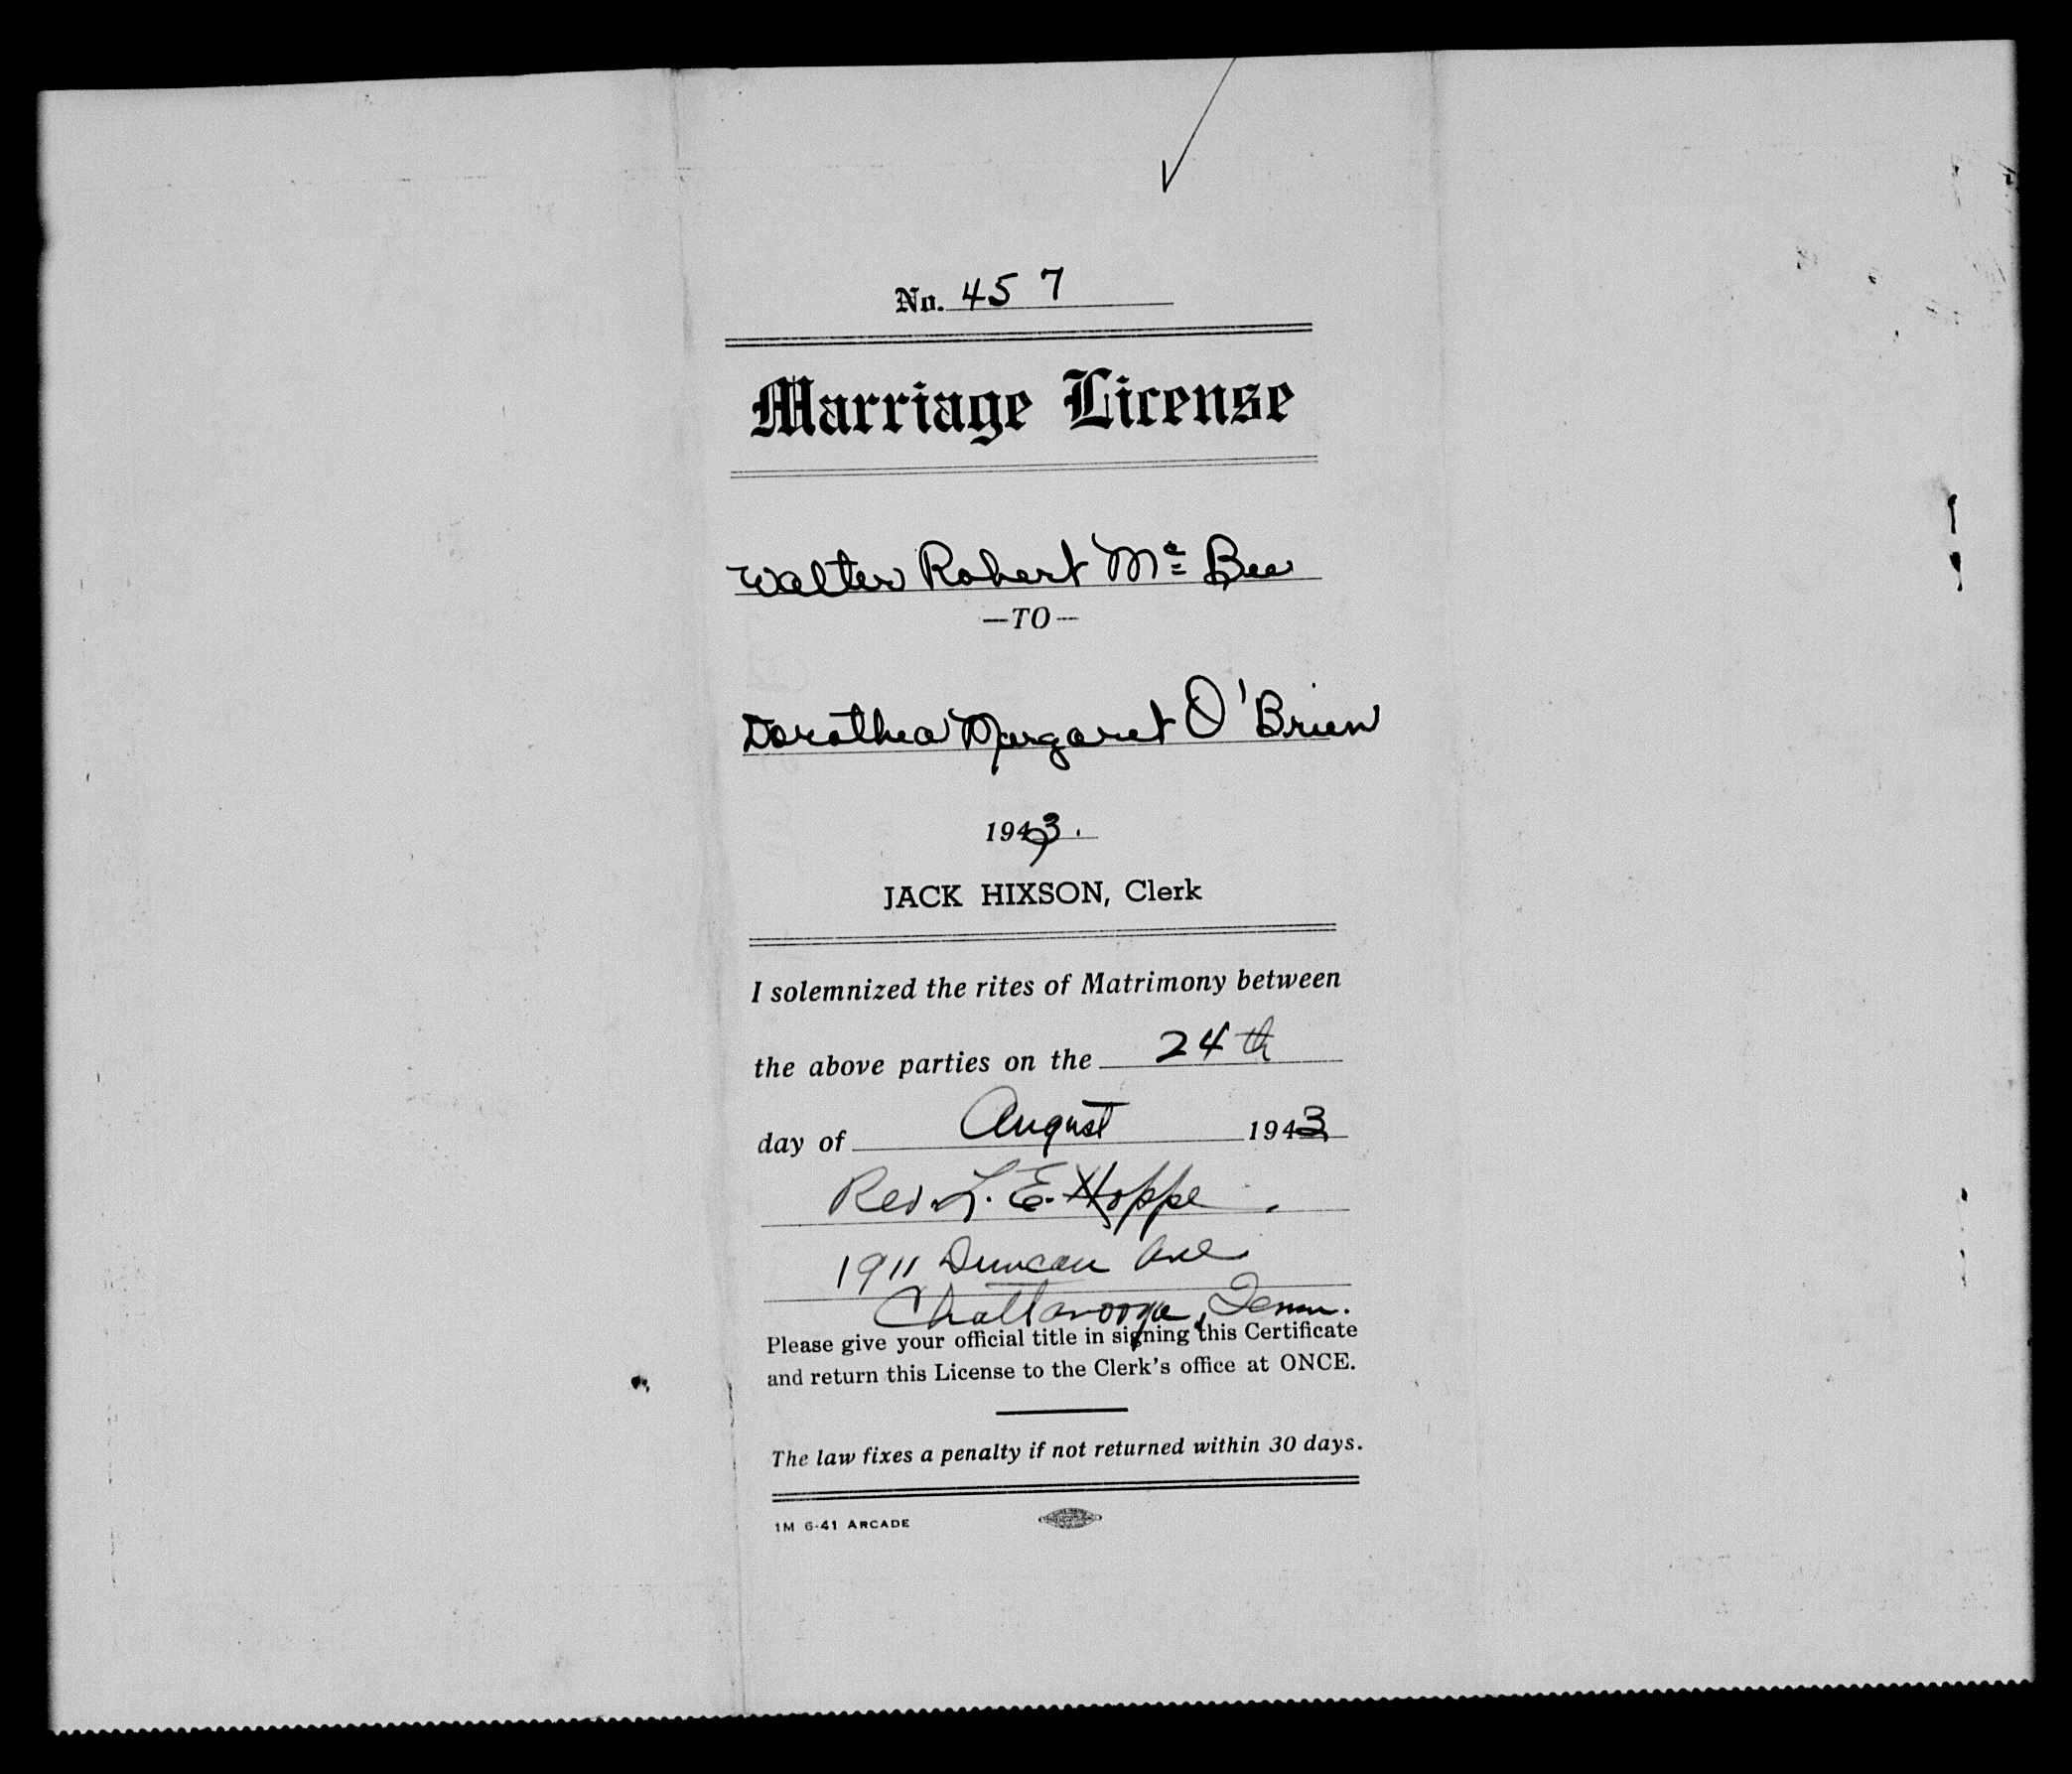 No. 457
Marriage License
Walter Robert Mc Bee
—TO—
Dorothea Margaret O'Brien
1943.
JACK HIXSON, Clerk
I solemnized the rites of Matrimony between
the above parties on the 24th
day of August 1943
Rev. L. E. Hoppe.
1911 Duncan Ave
Chattanooga, Tenn.
Please give your official title in signing this Certificate
and return this License to the Clerk's office at ONCE.
The law fixes a penalty if not returned within 30 days.
1M 6-41 ARCADE